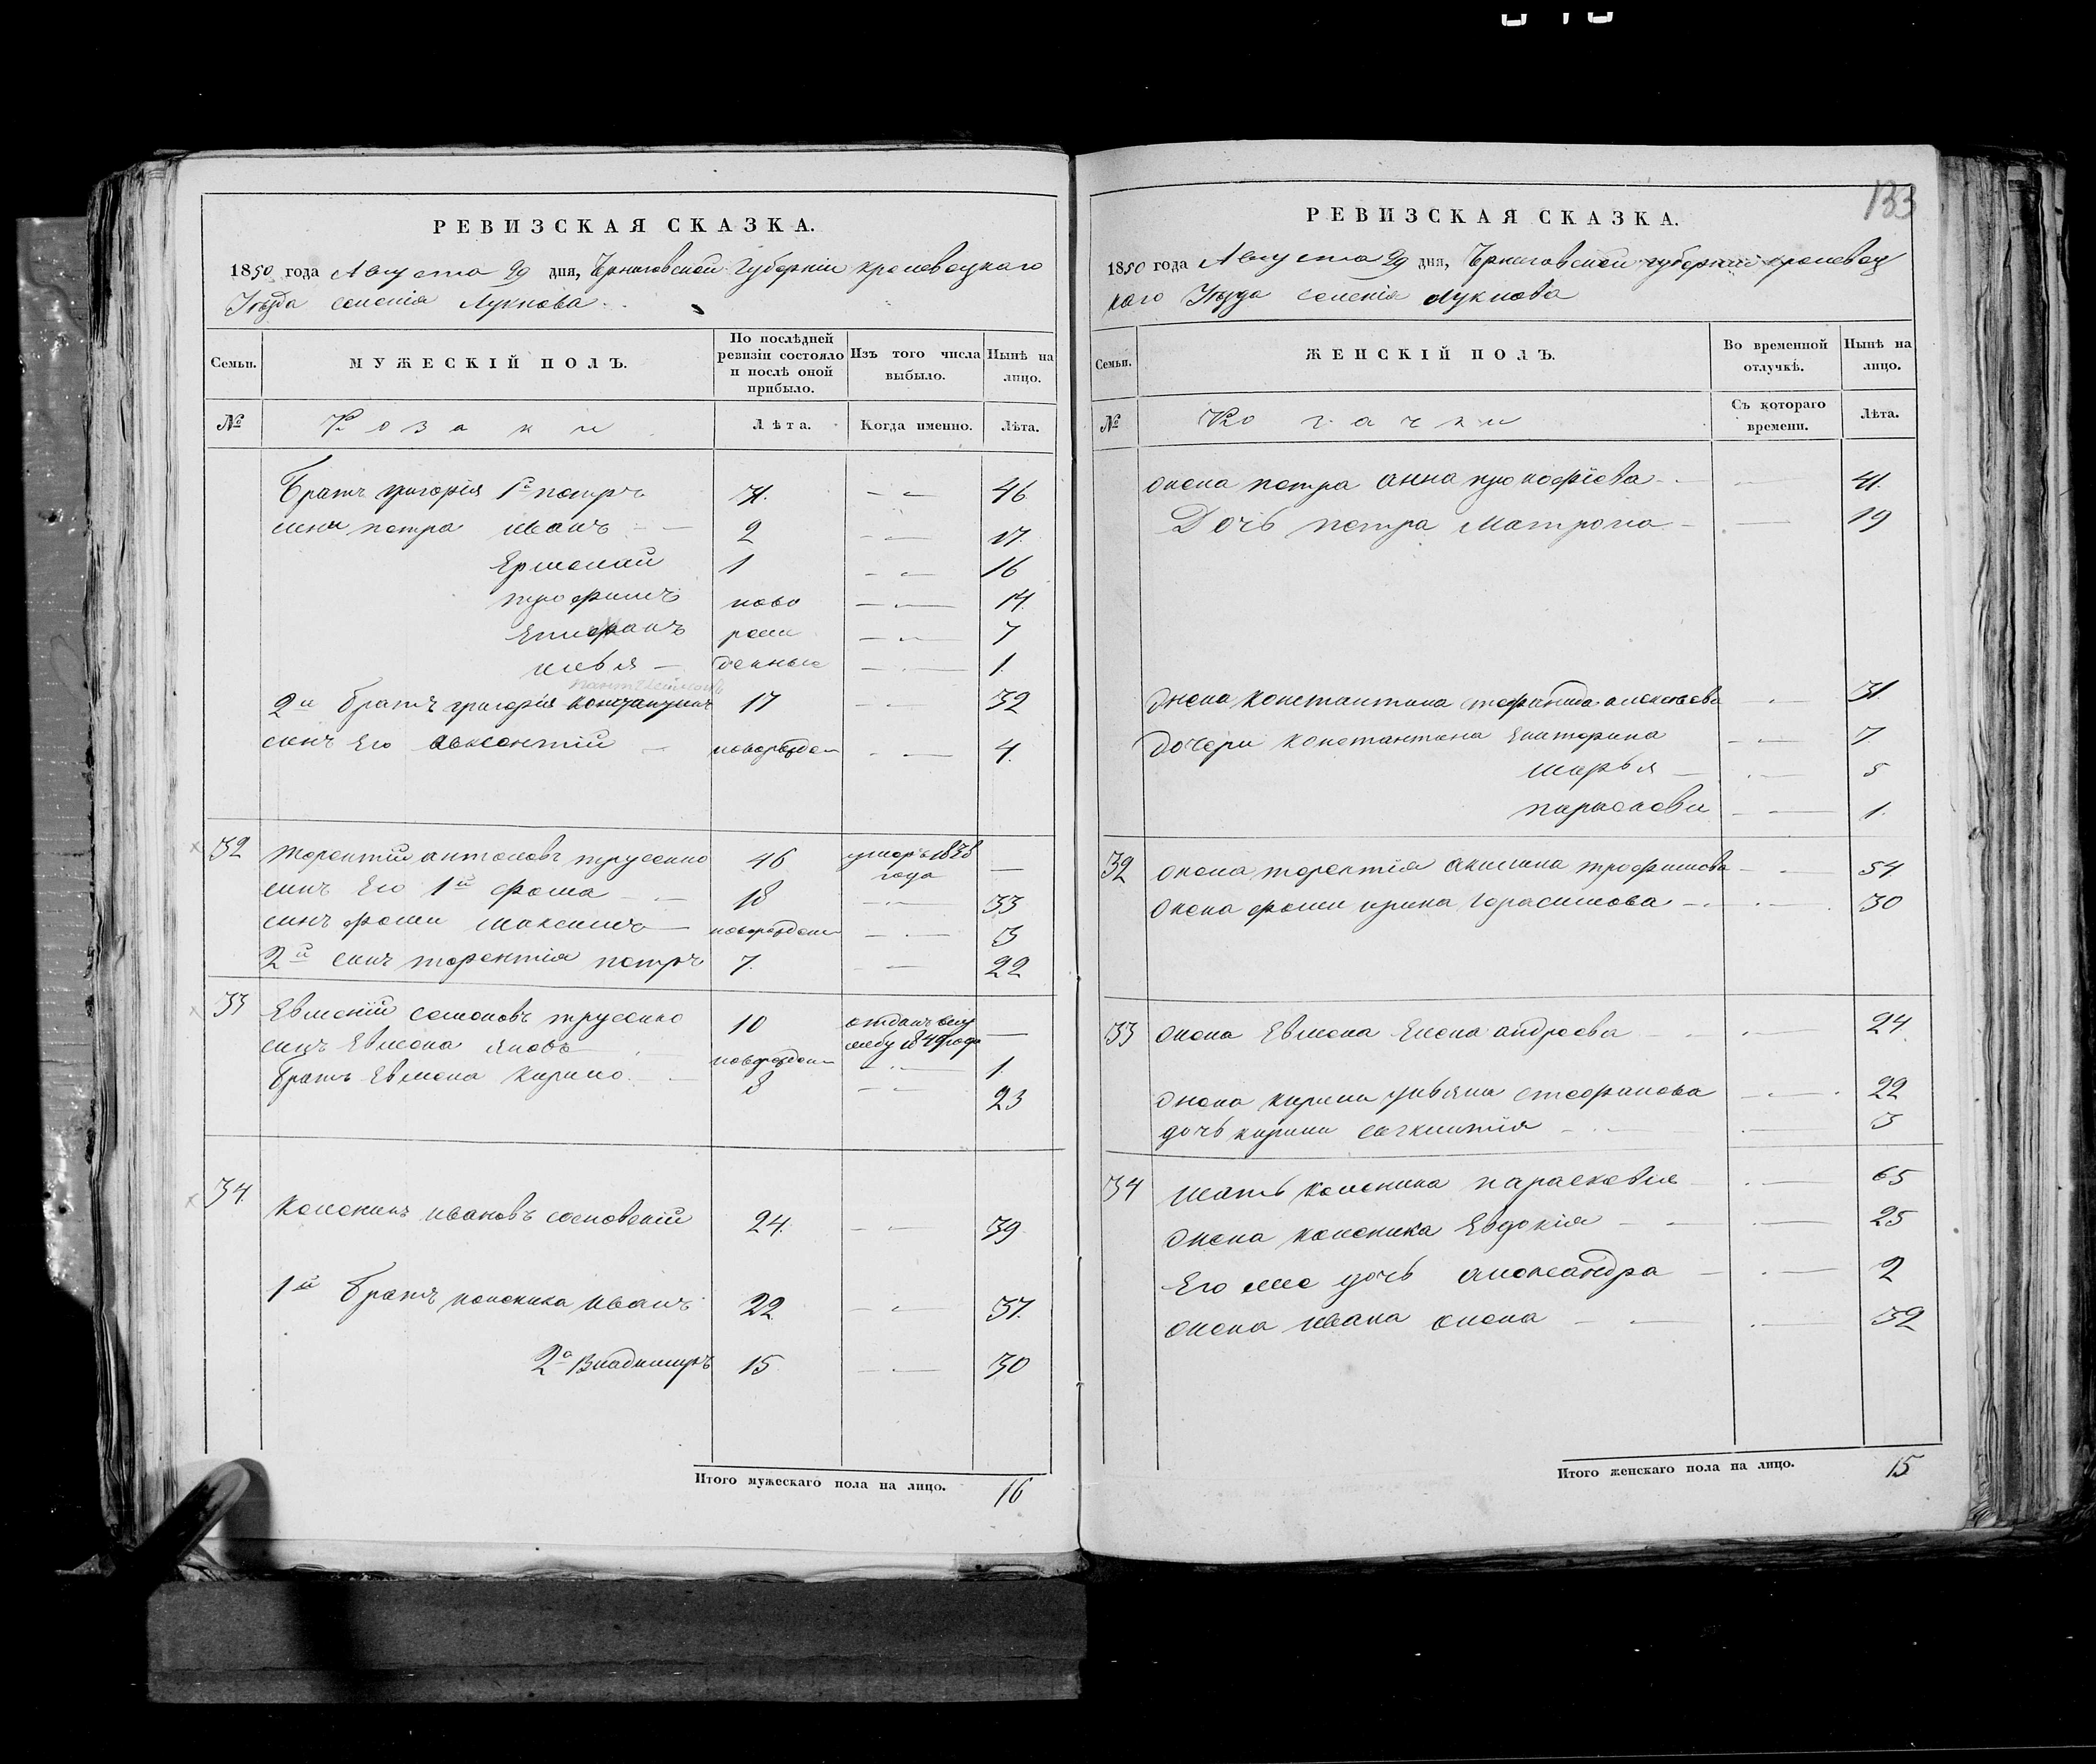 133
РЕВИЗСКАЯ СКАЗКА.
1850 года Августа 29 дня, Черниговской Губерніи кролевецкаго
Уѣзда селенія Лукнова
Семьи. МУЖЕСКІЙ ПОЛЪ. По послѣдней ревизіи состояло и послѣ оной прибыло. Изъ того числа выбыло. Нынѣ на лицо.
№ Козаки Лѣта. Когда именно. Лѣта.
Братъ григорія 1й петръ 31. 46
сини петра иванъ 2 17.
Ермолай 1 16
трофимъ ново 14.
Епифанъ рож 7
илья денные 1.
2й братъ григорія константинъ 17 32
синъ Его Авксентій новорожден 4.
32 терентій антоновъ трусенко 46 умеръ 1838 года —
синъ Его 1й фома 18 33
синъ фоми максимъ новорожден 3
2й синъ терентія петръ 7. 22
33 Евменій семеновъ трусенко 10 отданъ въ службу 1849 года —
синъ Евмена яковъ новорожден 1.
братъ Евмена кирило 8 23
34 каленикъ ивановъ сосновскій 24. 39
1й братъ каленика иванъ 22 37.
2й Владимиръ 15 30
Итого мужескаго пола на лицо. 16
РЕВИЗСКАЯ СКАЗКА.
1850 года Августа 29 дня, Черниговской губерніи кролевец
каго Уѣзда селенія Лукнова
Семьи. ЖЕНСКІЙ ПОЛЪ. Во временной отлучкѣ. Нынѣ на лицо.
№ Козачки Съ котораго времени. Лѣта.
жена петра анна прокофіева 41.
Дочь петра Матрона 19
жена константина стефанида алексѣева 31.
дочери константина Екатерина 7.
марья 5
парасковья 1.
32 жена терентія акилина трофимова 54
жена фоми ирина герасимова 30
33 жена Евмена Елена андреева 24
жена кирили ульяна стефанова 22
дочь кирили 3
34 мать каленика парасковія 65
жена каленика Евдокія 25
Его же дочь александра 2
жена ивана 32
Итого женскаго пола на лицо. 15